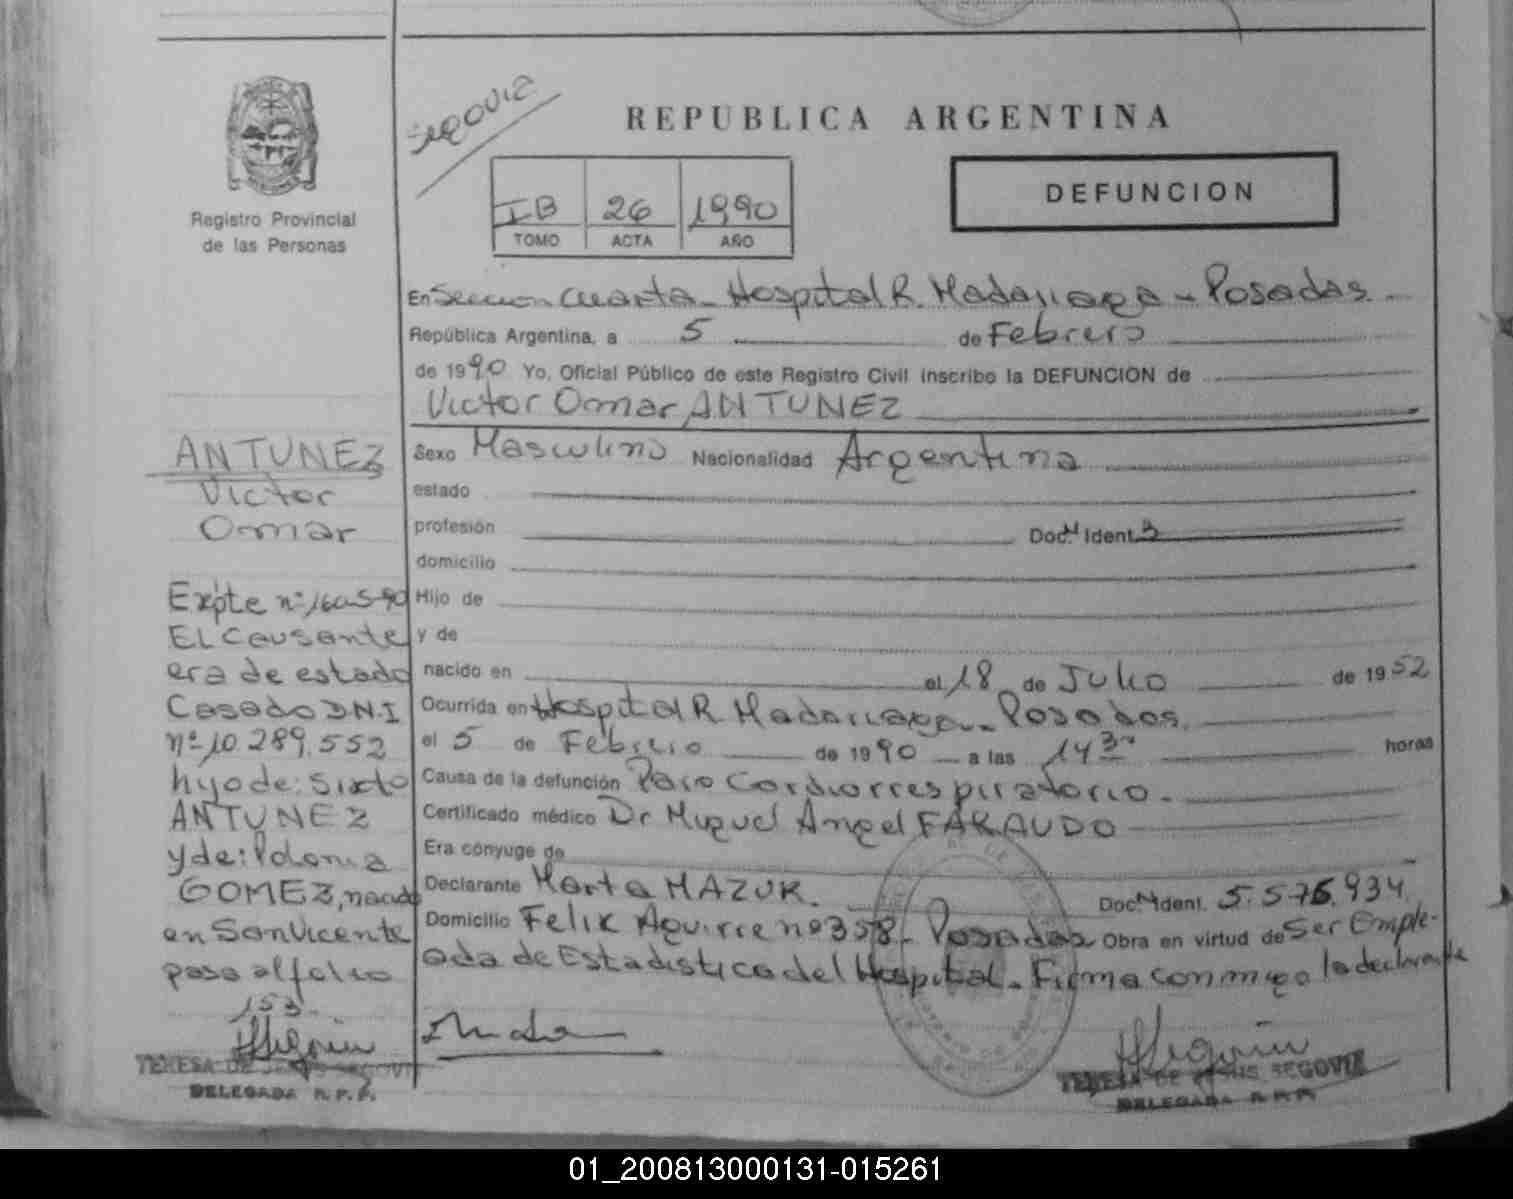 Segovia
REPUBLICA ARGENTINA
Registro Provincial
de las Personas
IB 26 1990
TOMO ACTA AÑO
DEFUNCION
En Seccion Cuarta - Hospital R. Madariaga - Posadas
República Argentina, a 5 de Febrero
de 1990 Yo, Oficial Público de este Registro Civil inscribo la DEFUNCION de
Victor Omar ANTUNEZ
Sexo Masculino Nacionalidad Argentina
estado
profesión Doc. Ident.
domicilio
Hijo de
y de
nacido en el 18 de Julio de 1952
Ocurrida en Hospital R. Madariaga - Posadas.
el 5 de Febrero de 1990 a las 14 30 horas
Causa de la defunción Paro Cardiorrespiratorio.
Certificado médico Dr Miguel Angel FARAUDO
Era cónyuge de
Declarante Marta MAZUR. Doc. Ident. 5.575.934
Domicilio Felix Aguirre nº 358 - Posadas Obra en virtud de Ser Emple-
ada de Estadistica del Hospital. Firma conmigo la declarante
ANTUNEZ
Victor
Omar
Expte nº 1605-90
El Causante
era de estado
Casado D.N.I
nº 10.289.552
hijo de: Sixto
ANTUNEZ
y de: Polonia
GOMEZ, nacido
en San Vicente
pasa al folio
153.
TERESA DE JESUS SEGOVIA
DELEGADA R.P.P.
TERESA DE JESUS SEGOVIA
DELEGADA R.P.P.
01_200813000131-015261